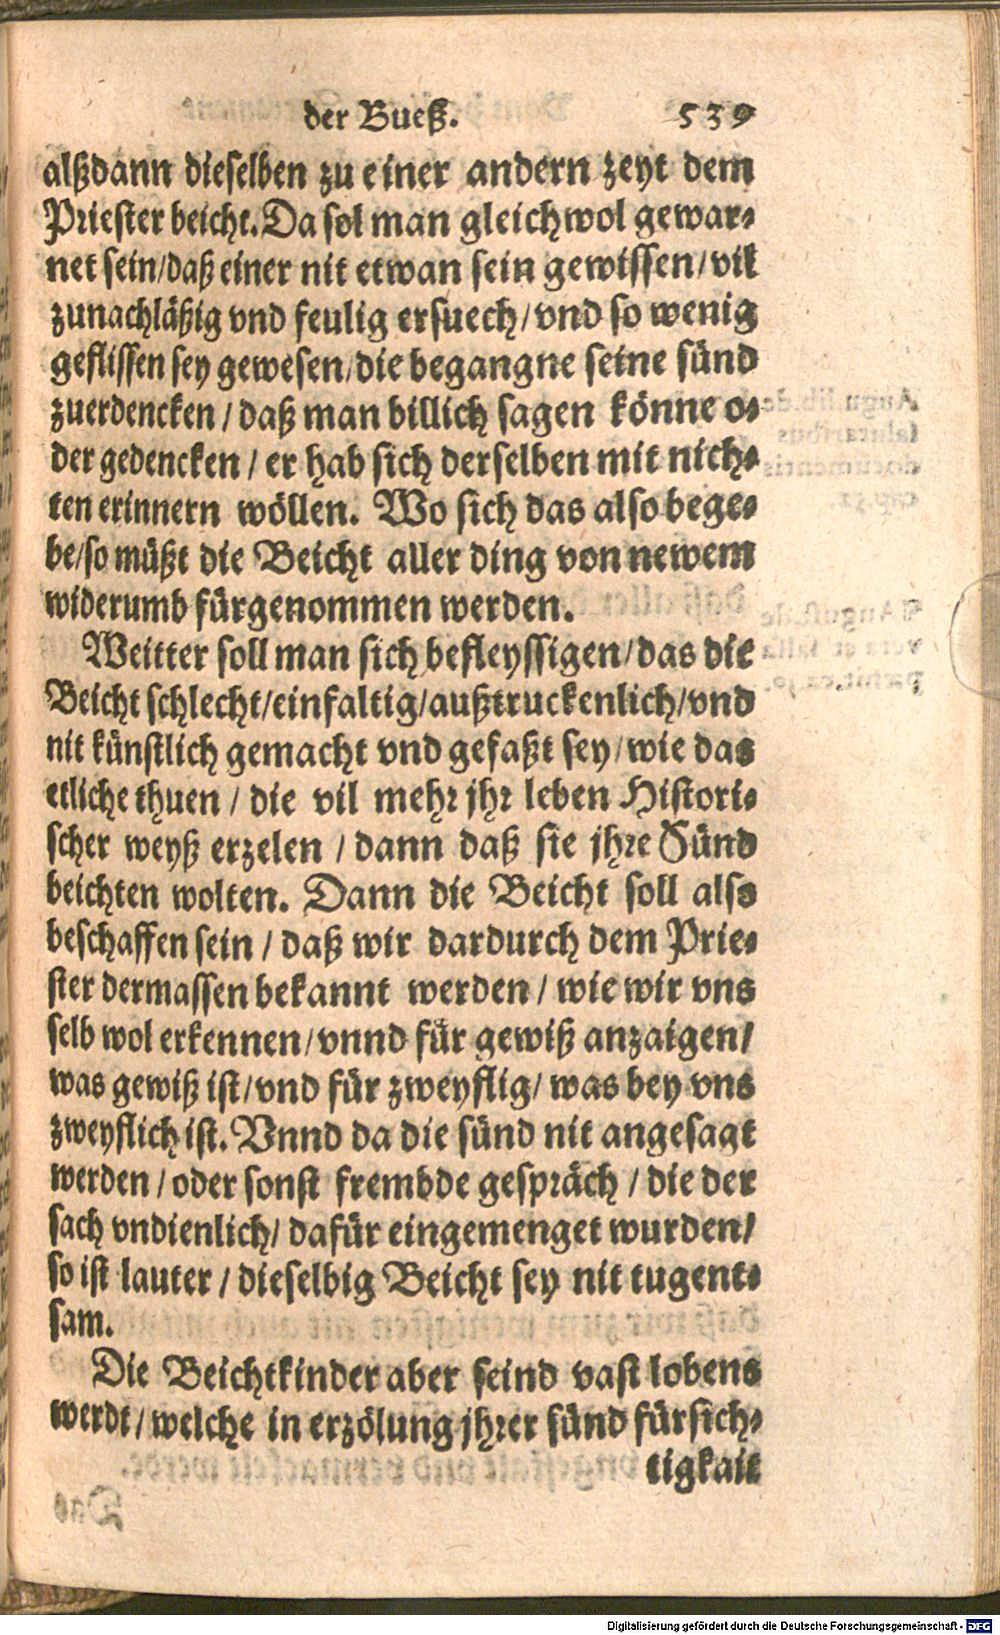 der Bueß. 539
alßdann dieselben zu einer andern zeyt dem
Priester beicht. Da sol man gleichwol gewar⸗
net sein/daß einer nit etwan sein gewissen/vil
zunachläßig vnd feulig ersuech/vnd so wenig
geflissen sey gewesen/die begangne seine sünd
zuerdencken/daß man billich sagen könne o⸗
der gedencken/er hab sich derselben mit nich⸗
ten erinnern wöllen. Wo sich das also bege⸗
be/so müßt die Beicht aller ding von newem
widerumb fürgenommen werden.
Weitter soll man sich befleyssigen/das die
Beicht schlecht/einfaltig/außtruckenlich/vnd
nit künstlich gemacht vnd gefaßt sey/wie das
etliche thuen/die vil mehr jhr leben Histori⸗
scher weyß erzelen/dann daß sie jhre Sünd
beichten wolten. Dann die Beicht soll also
beschaffen sein/daß wir dardurch dem Prie⸗
ster dermassen bekannt werden/wie wir vns
selb wol erkennen/vnnd für gewiß anzaigen/
was gewiß ist/vnd für zweyflig/was bey vns
zweyflich ist. Vnnd da die sünd nit angesagt
werden/oder sonst frembde gespräch/die der
sach vndienlich/dafür eingemenget wurden/
so ist lauter/dieselbig Beicht sey nit tugent⸗
sam.
Die Beichtkinder aber seind vast lobens
werdt/welche in erzölung jhrer sünd fürsich⸗
tigkait
Digitalisierung gefördert durch die Deutsche Forschungsgemeinschaft - DFG